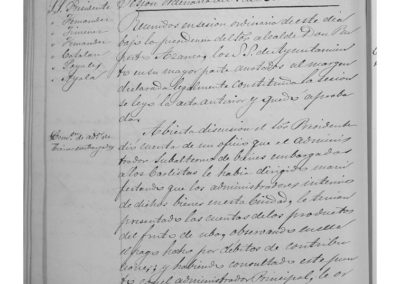 S.S. Presidente
" Fernandez
" Gimenez
" Fernandez
" Catalan
" Zayala
" Ayala
Sesion ordinaria
Reunidos en sesion ordinaria de este dia
bajo la presidencia del Sor. alcalde Don
los S.S. de Ayuntamien
to en su mayor parte anotados al margen
declarada legalmente constituida la sesion
se leyó la acta anterior y quedó aproba
da.
Abierta discusion el Sor. Presidente
dió cuenta de un oficio que el Adminis
trador Subalterno de bienes embargados
a los Carlistas le habia dirigido mani
festando que los administradores interinos
de dichos bienes en esta Ciudad, le tenian
presentado las cuentas de los productos
del fruto de uba, observando en ella
el pago hecho por debitos de contribu
ciones, y habiendo consultado este pun
to con el administrador Principal, le or
bienes embargados